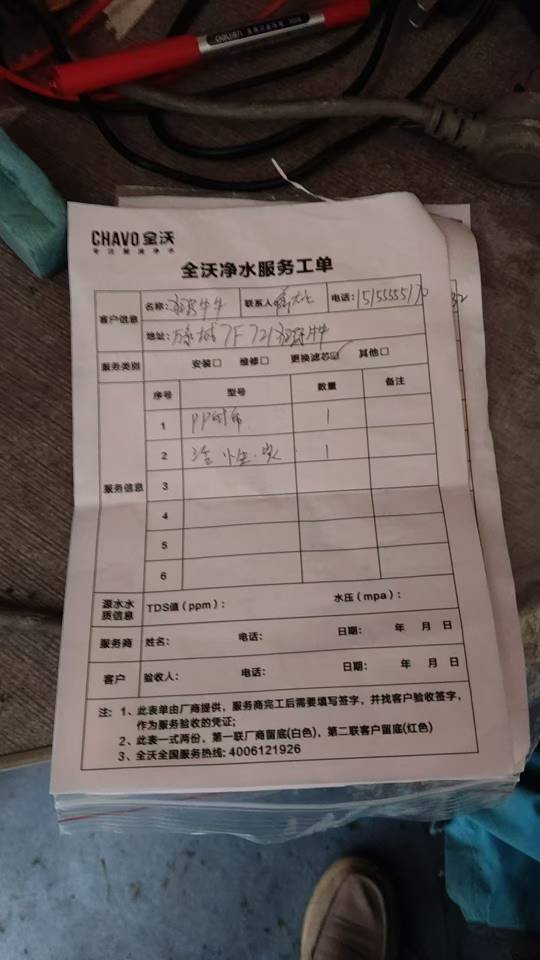 CHAVO 全沃
全沃净水服务工单
客户信息 名称: 牛牛 联系人: 电话:
地址: 7F 721 牛牛
服务类别 安装□ 维修□ 更换滤芯☑ 其他□
服务信息 序号 型号 数量 备注
1 PP 1
2 活性炭 1
3
4
5
6
源水水质信息 TDS值（ppm）: 水压（mpa）:
服务商 姓名: 电话: 日期: 年 月 日
客户 验收人: 电话: 日期: 年 月 日
注: 1、此表单由厂商提供，服务商完工后需要填写签字，并找客户验收签字，
作为服务验收的凭证;
2、此表一式两份，第一联厂商留底(白色)，第二联客户留底(红色)
3、全沃全国服务热线: 4006121926